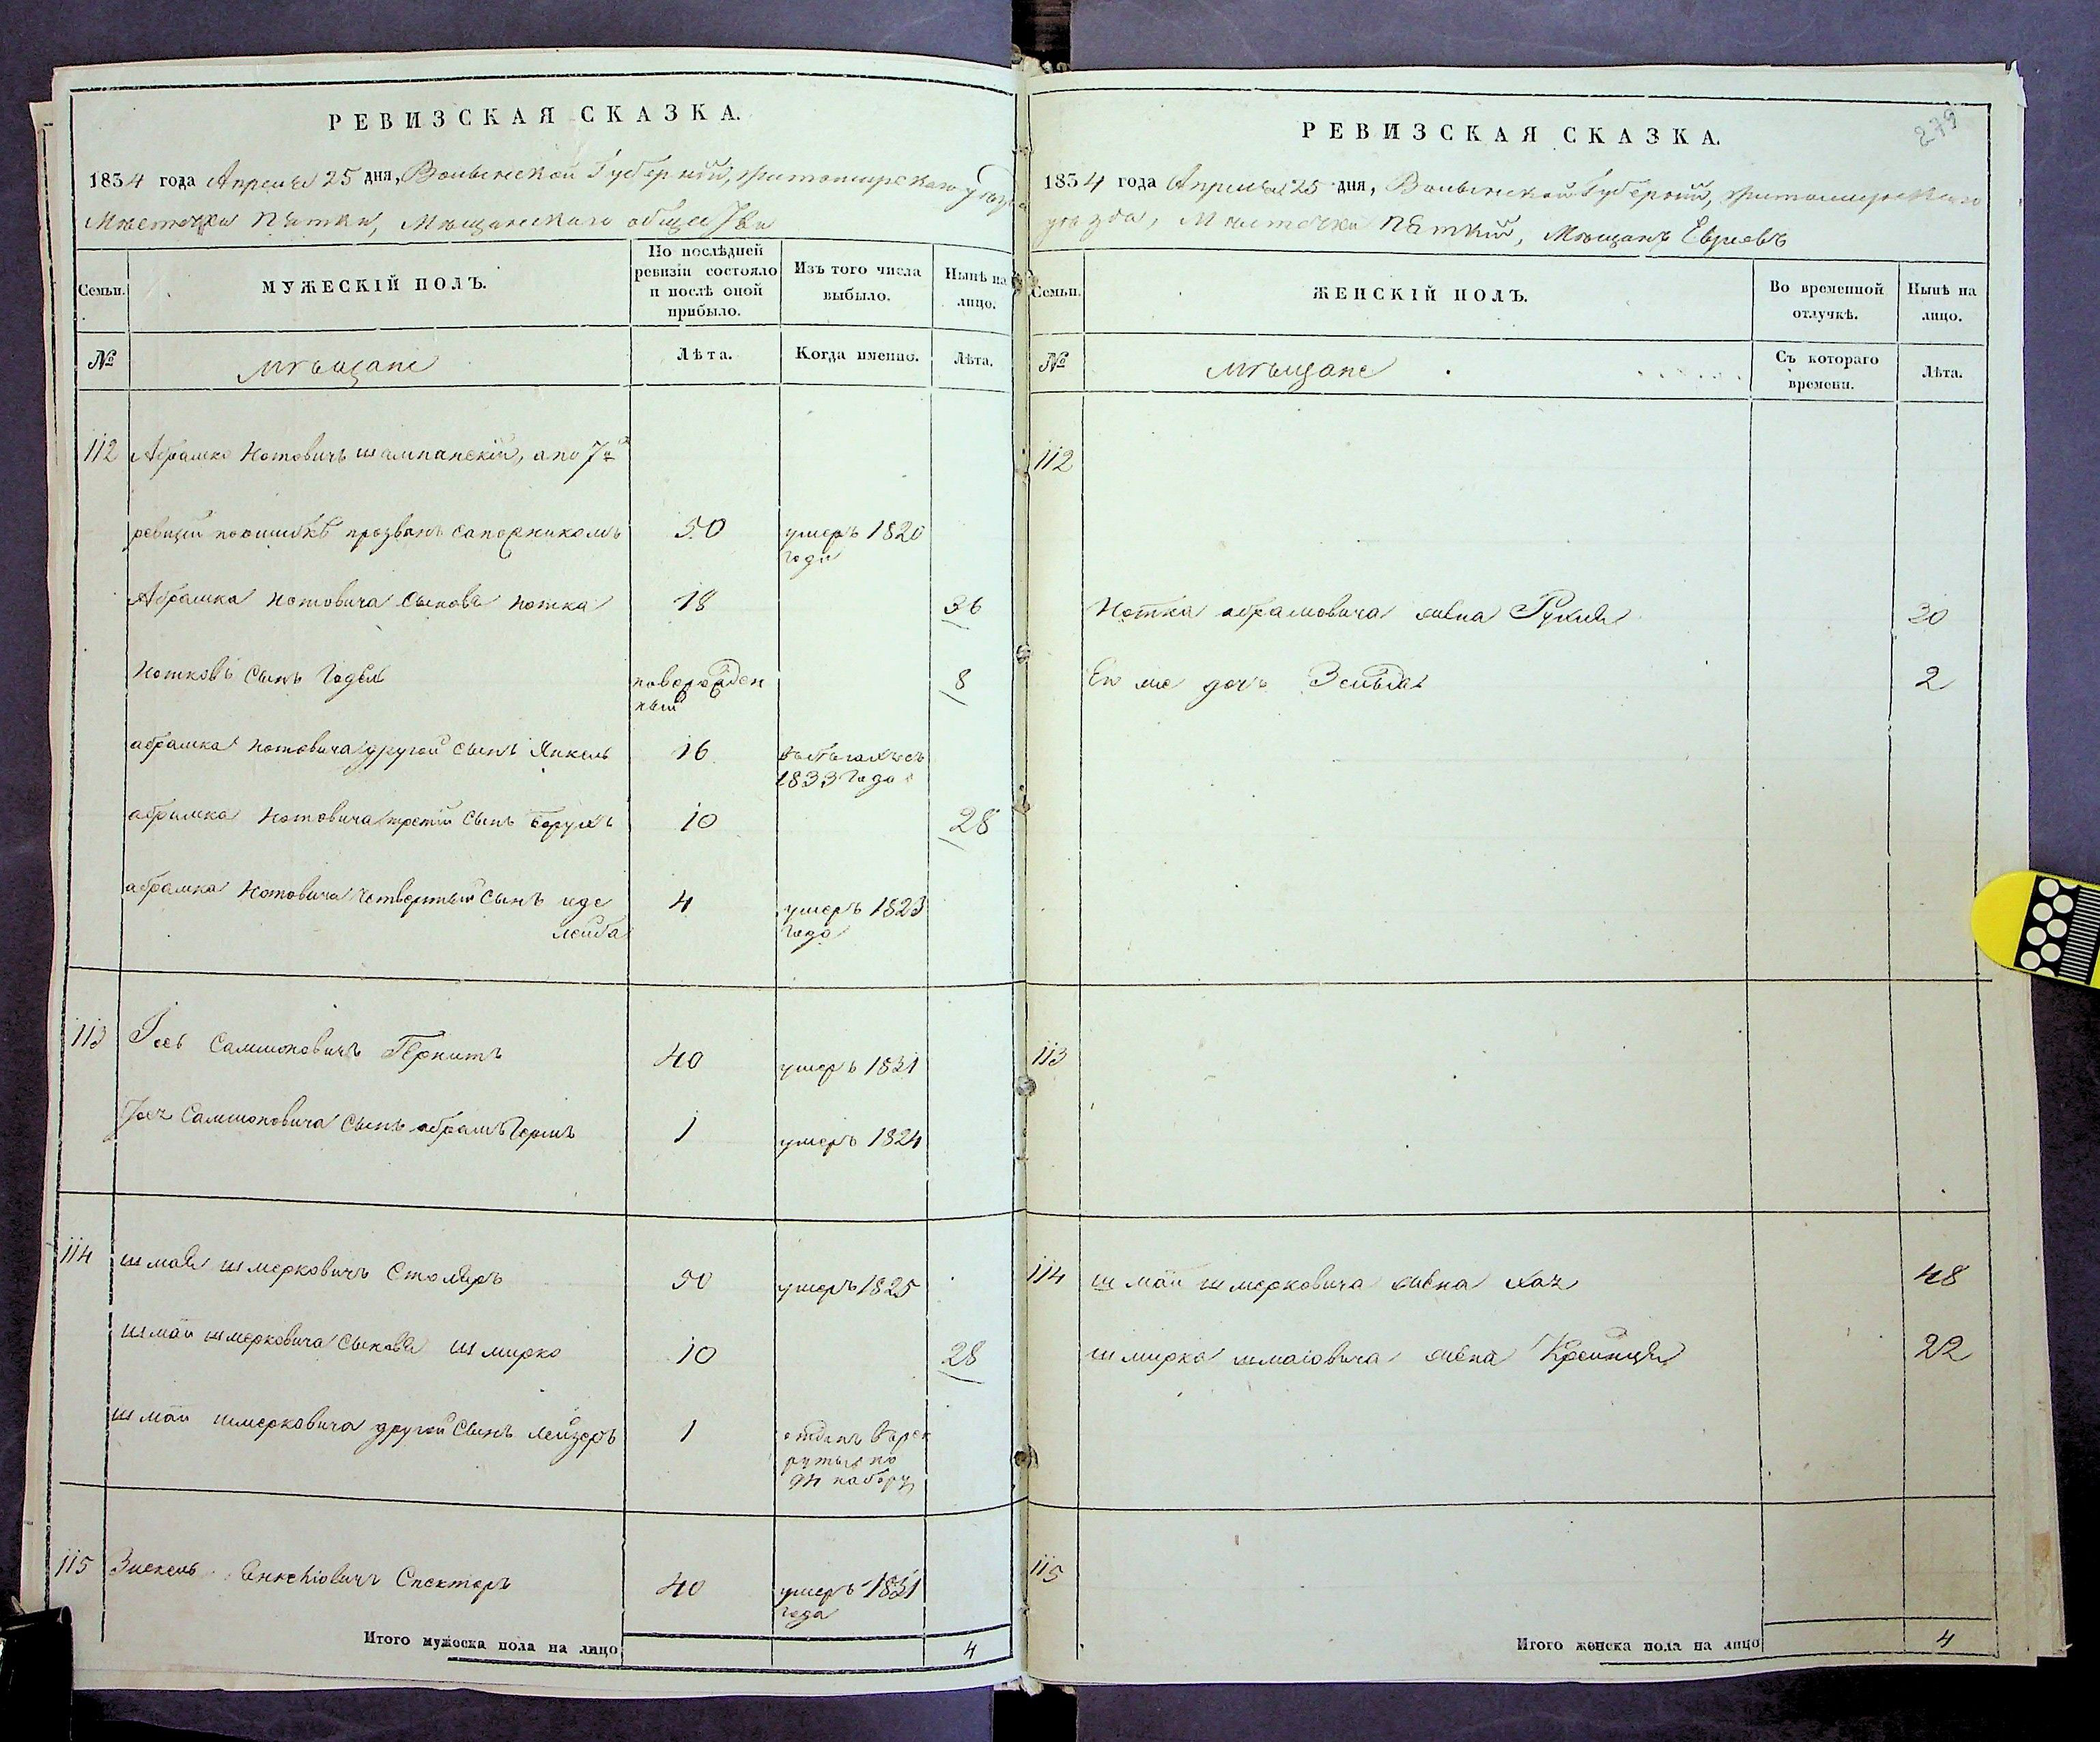 РЕВИЗСКАЯ СКАЗКА.
1834 года Апреля 25 дня, Волынской Губернии, Житомирского уезда
Местечка Пятки, Мещанского общества
Семьи.
МУЖЕСКІЙ ПОЛЪ.
По послѣдней ревизіи состояло и послѣ оной прибыло.
Изъ того числа выбыло.
Нынѣ на лицо.
№
мѣщане
Лѣта.
Когда именно.
Лѣта.
112 Абрамко Нотовичъ шампанскій, а по 7й
ревизіи поошибкѣ прозванъ сапожникомъ 50 умеръ 1820
года
Абрамка Нотовича Сыновя Нотка 18 36
Нотковъ Сынъ Годель новорожден 8
ный
абрамка Нотовича другой сынъ Янкель 16
1833 Года
абрамка Нотовича третій Сынъ Борухъ 10 28
абрамка Нотовича четвертый Сынъ иде 4 умеръ 1823
лейба года
113 Іось Самшоновичъ 40 умеръ 1831
Іося Самшоновича Сынъ абрамъ Гершъ 1 умеръ 1824
114 шмая шмерковичъ Столяръ 50 умеръ 1825
шмаи шмерковича Сыновя шмирко 10 28
шмаи шмерковича другой Сынъ лейзеръ 1 отданъ врек
руты по
набору
115 Спекторъ 40 умеръ 1831
года
Итого мужеска пола на лицо 4
РЕВИЗСКАЯ СКАЗКА.
279
1834 года Апреля 25 дня, Волынской Губерніи, Житомирского
уезда, Местечка Пятки, Мещанъ Евреевъ
Семьи.
ЖЕНСКІЙ ПОЛЪ.
Во временной отлучкѣ.
Нынѣ на лицо.
№
мѣщане
Съ котораго времени.
Лѣта.
112
Нотка абрамовича жена Рухля 30
Ею же дочь Зельда 2
113
114 шмаи шмерковича жена хая 48
шмирка шмаіовича жена Крейнця 22
115
Итого женска пола на лицо 4